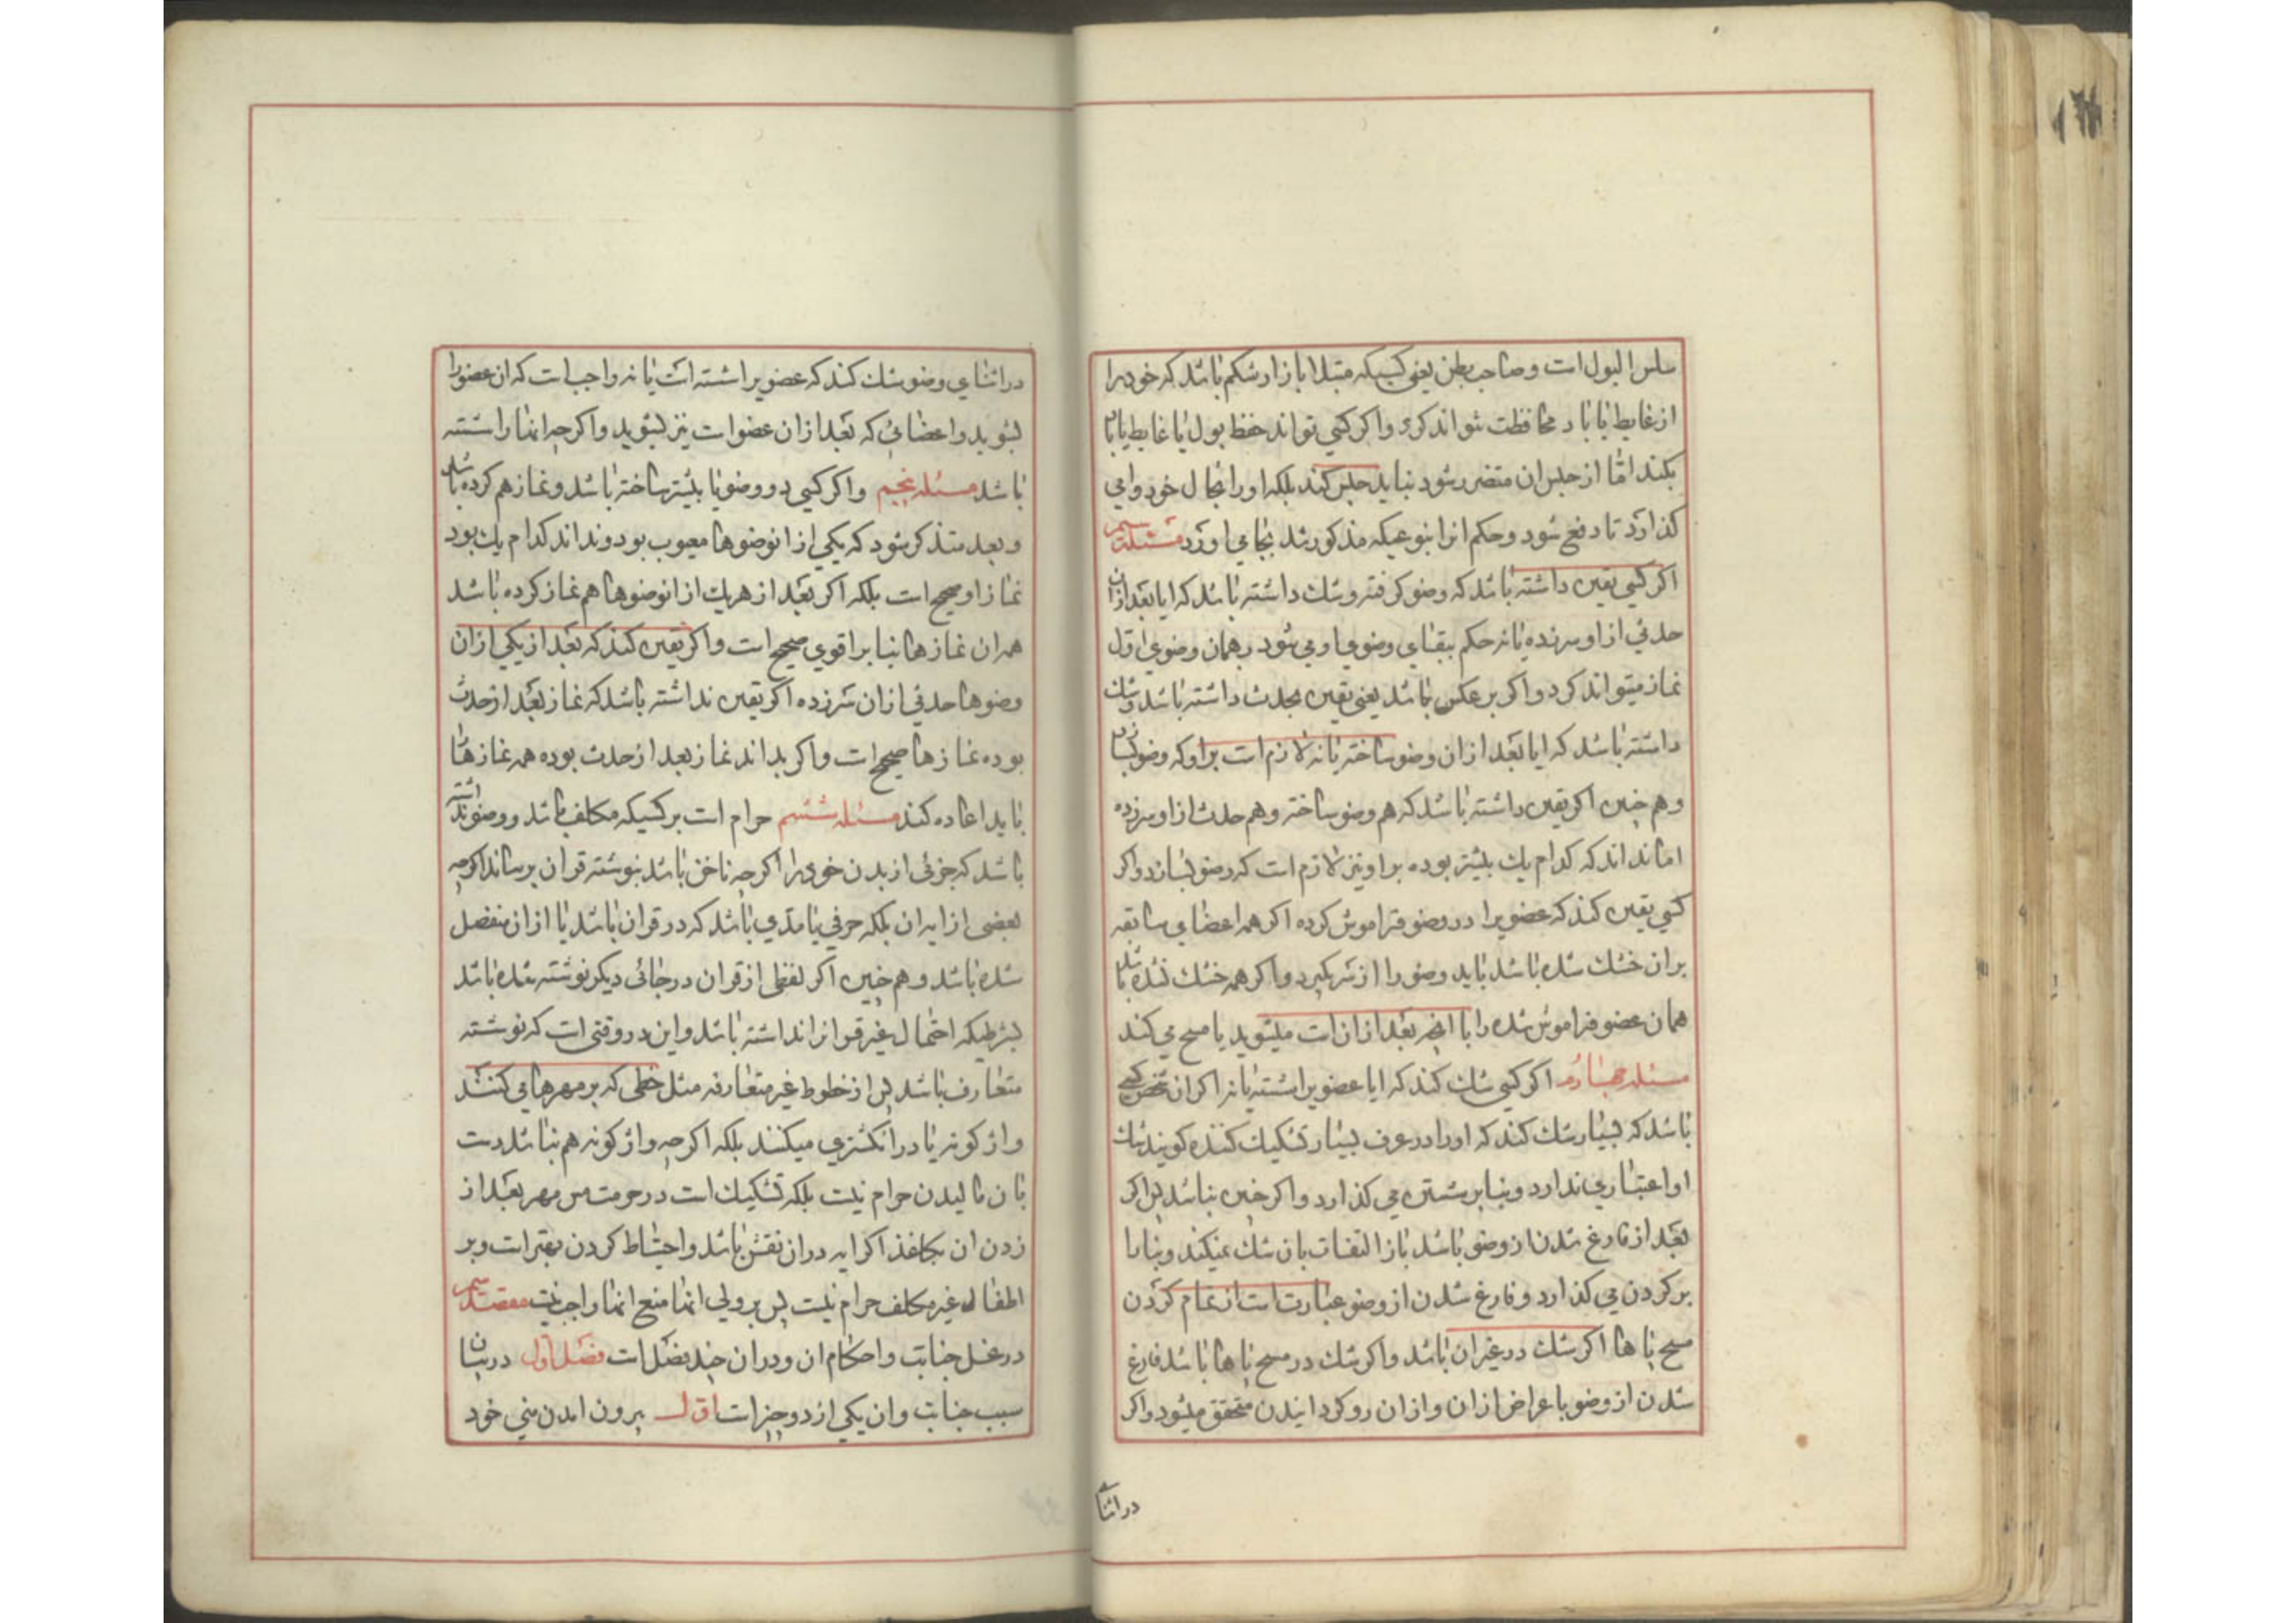 سلس البول است و صاحب بطن یعنی کسیکه مبتلا با زار شکم باشد که خود را
از غایط یا باد محافظت نتواند کرد و اکر کسی تواند حفظ بول یا غایط یا باد
بکند امّا از حبس ان متضرر شود نباید حبس کند بلکه او را بحال خود وامی
کذارد تا دفع شود و حکم انرا بنوعیکه مذکور شد بجا می اورد مسئله سیم
اکر کسی یقین داشته باشد که وضو کرفته و شک داشته باشد که ایا بعد از ان
حدثی از او سرزده یا نه حکم ببقای وضوی او می شود و بهمان وضوی اول
نماز میتواند کرد و اکر بر عکس باشد یعنی یقین بحدث داشته باشد و شک
داشته باشد که ایا بعد از ان وضو ساخته یا نه لازم است بر او که وضو بسازد
و هم چنین اکر یقین داشته باشد که هم وضو ساخته و هم حدث از او سرزده
اما نداند که کدام یک بیشتر بوده بر او نیز لازم است که وضو بسازد و اکر
کسی یقین کند که عضویرا در وضو فراموش کرده اکر همه اعضای سابقه
بران خشک شده باشد باید وضو را از سر بکیرد و اکر همه خشک نشده باشد
همان عضو فراموش شده را با انچه بعد از ان است میشوید یا مسح می کند
مسئله چهارم اکر کسی شک کند که ایا عضویرا شسته یا نه اکر ان شخص کسی
باشد که بسیار شک کند که او را در عرف بسیار تشکیک کننده کویند شک
او اعتباری ندارد و بنا بر شستن می کذارد و اکر چنین نباشد پس اکر
بعد از فارغ شدن از وضو باشد باز التفات بان شک نمیکند و بنا را
بر کردن می کذارد و فارغ شدن از وضو عبارت است از تمام کردن
مسح پا ها اکر شک در غیر ان باشد و اکر شک در مسح پا ها باشد فارغ
شدن از وضو با عراض از ان و از ان رو کردانیدن متحقق میشود و اکر
در اثنای
در اثنای وضو شک کند که عضویرا شسته است یا نه واجب است که ان عضو را
بشوید و اعضائی که بعد از ان عضو است نیز بشوید و اکر چه انها را شسته
باشد مسئله پنجم و اکر کسی دو وضو یا بیشتر ساخته باشد و نماز هم کرده باشد
و بعد متذکر شود که یکی از انوضوها معیوب بود و نداند کدام یک بود
نماز او صحیح است بلکه اکر بعد از هر یک از انوضوها هم نماز کرده باشد
همه ان نماز ها بنا بر اقوی صحیح است و اکر یقین کند که بعد از یکی از ان
وضوها حدثی از ان سرزده اکر یقین نداشته باشد که نماز بعد از حدث
بوده نماز ها صحیح است و اکر بداند نماز بعد از حدث بوده همه نماز ها را
باید اعاده کند مسئله ششم حرام است بر کسیکه مکلف باشد و وضو نداشته
باشد که جزئی از بدن خود را اکر چه ناخن باشد بنوشته قران برساند اکر چه
بعضی از ایه ان بلکه حرفی یا مدّی باشد که در قران باشد یا از ان منفصل
شده باشد و هم چنین اکر لفظی از قران در جائی دیکر نوشته شده باشد
بشرطیکه احتمال غیر قران نداشته باشد و این در وقتی است که نوشته
متعارف باشد پس از خطوط غیر متعارفه مثل خطی که بر مهرها می کنند
واژکونه یا در انکشتری میکنند بلکه اکر چه واژکونه هم نباشد دست
بان مالیدن حرام نیست بلکه تشکیک است در حرمت مس مهر بعد از
زدن ان بکاغذ اکر ایه در ان نقش باشد و احتیاط کردن بهتر است و بر
اطفال غیر مکلف حرام نیست پس بر ولی انها منع انها واجب نیست مقصد سیم
در غسل جنابت و احکام ان و در ان چند فصل است فصل اول در بیان
سبب جنابت و ان یکی از دو چیز است اول بیرون امدن منی خود